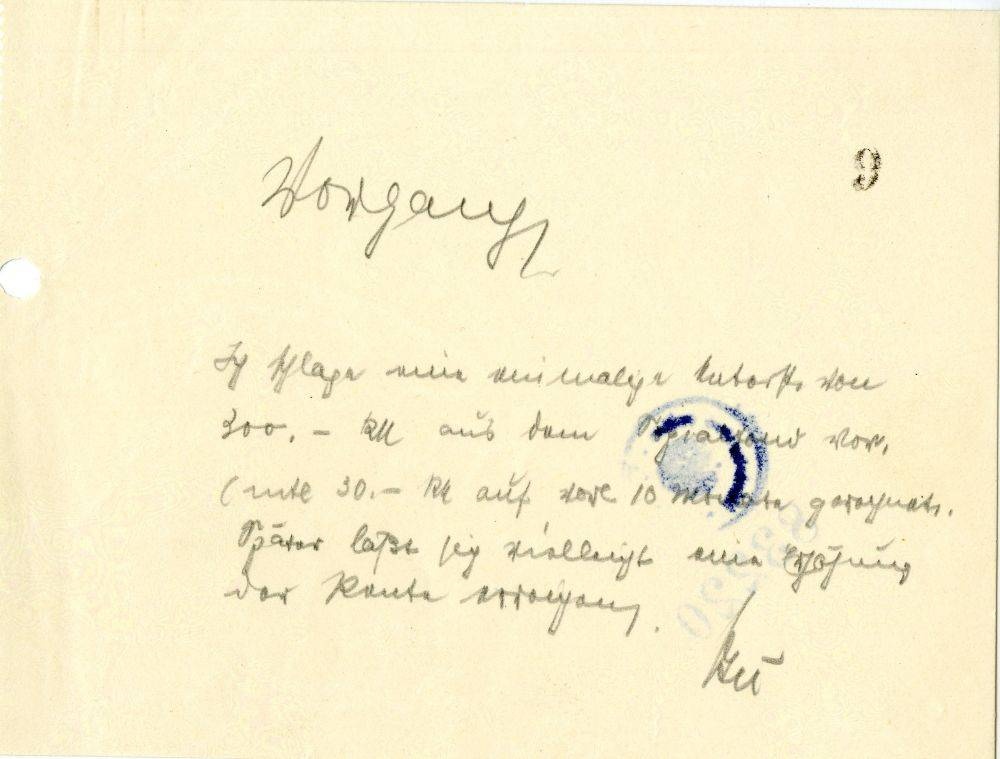 9
Vorgang
Ich schlage eine einmalige Unterst. von
300.- RM aus dem vor.
(mtl 30.- RM auf vorl 10 Monate gerechnet.
Später läßt sich vielleicht eine Erhöhung
der Rente erreichen.